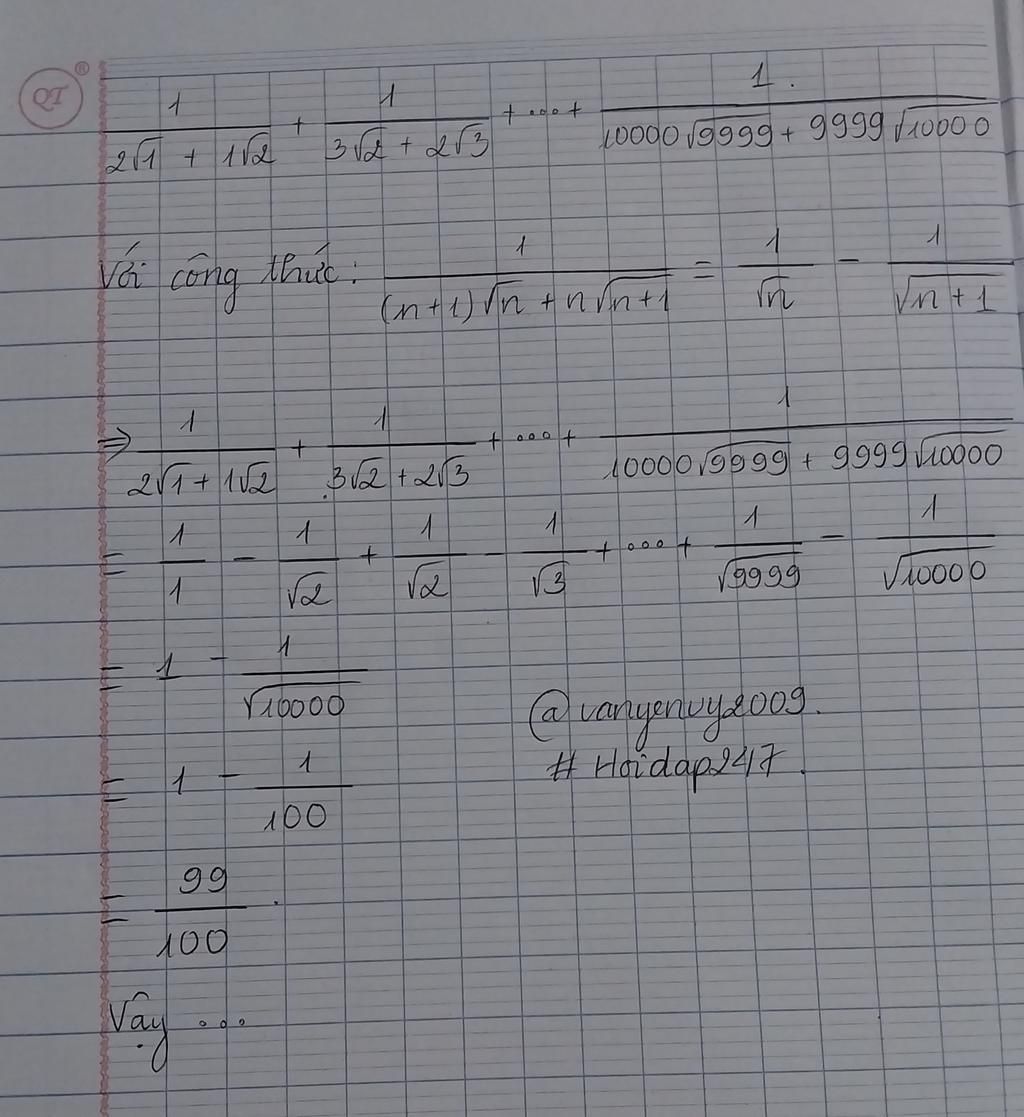 QT ®
1/(2√1 + 1√2) + 1/(3√2 + 2√3) + ... + 1/(10000√9999 + 9999√10000)
Với công thức: 1/((n+1)√n + n√(n+1)) = 1/√n - 1/√(n+1)
⇒ 1/(2√1 + 1√2) + 1/(3√2 + 2√3) + ... + 1/(10000√9999 + 9999√10000)
= 1/1 - 1/√2 + 1/√2 - 1/√3 + ... + 1/√9999 - 1/√10000
= 1 - 1/√10000
@vanyenvy2009.
= 1 - 1/100
# Hoidap247.
= 99/100.
Vậy ...